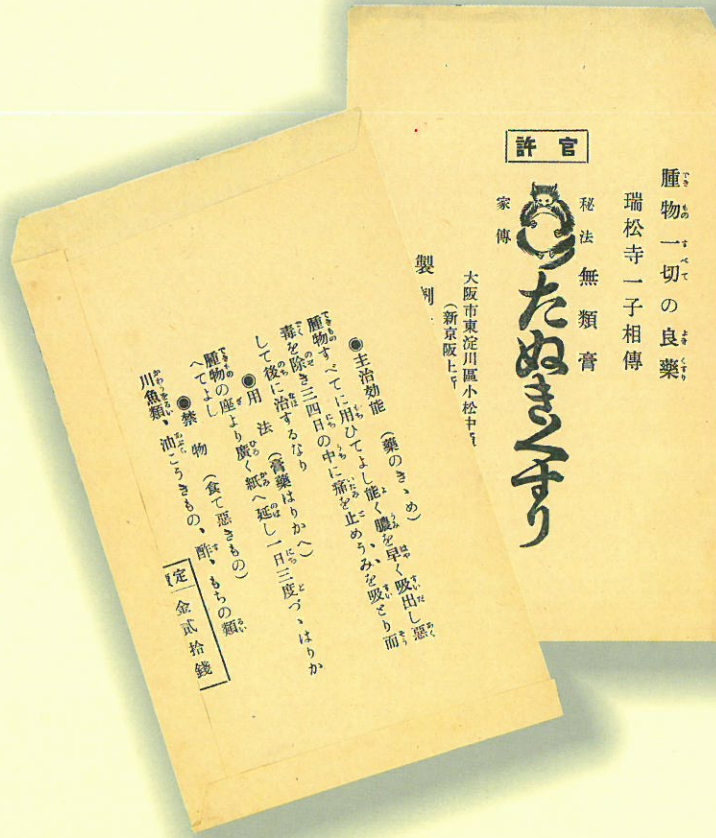 腫物一切の良藥
瑞松寺一子相傳
官許
秘法
無類膏
家傳
たぬきくすり
大阪市東淀川區小松中
(新京阪上
製
◉主治効能(藥のきゝめ)
腫物すべてに用ひてよし能く膿を早く吸出し惡
毒を除き三四日の中に痛を止めうみを吸とり而
して後に治するなり
◉用法(膏藥はりかへ)
腫物の座より廣く紙へ延し一日三度づゝはりか
へてよし
◉禁物(食て惡きもの)
川魚類、油こうきもの、酢、もちの類
定
金貳拾錢